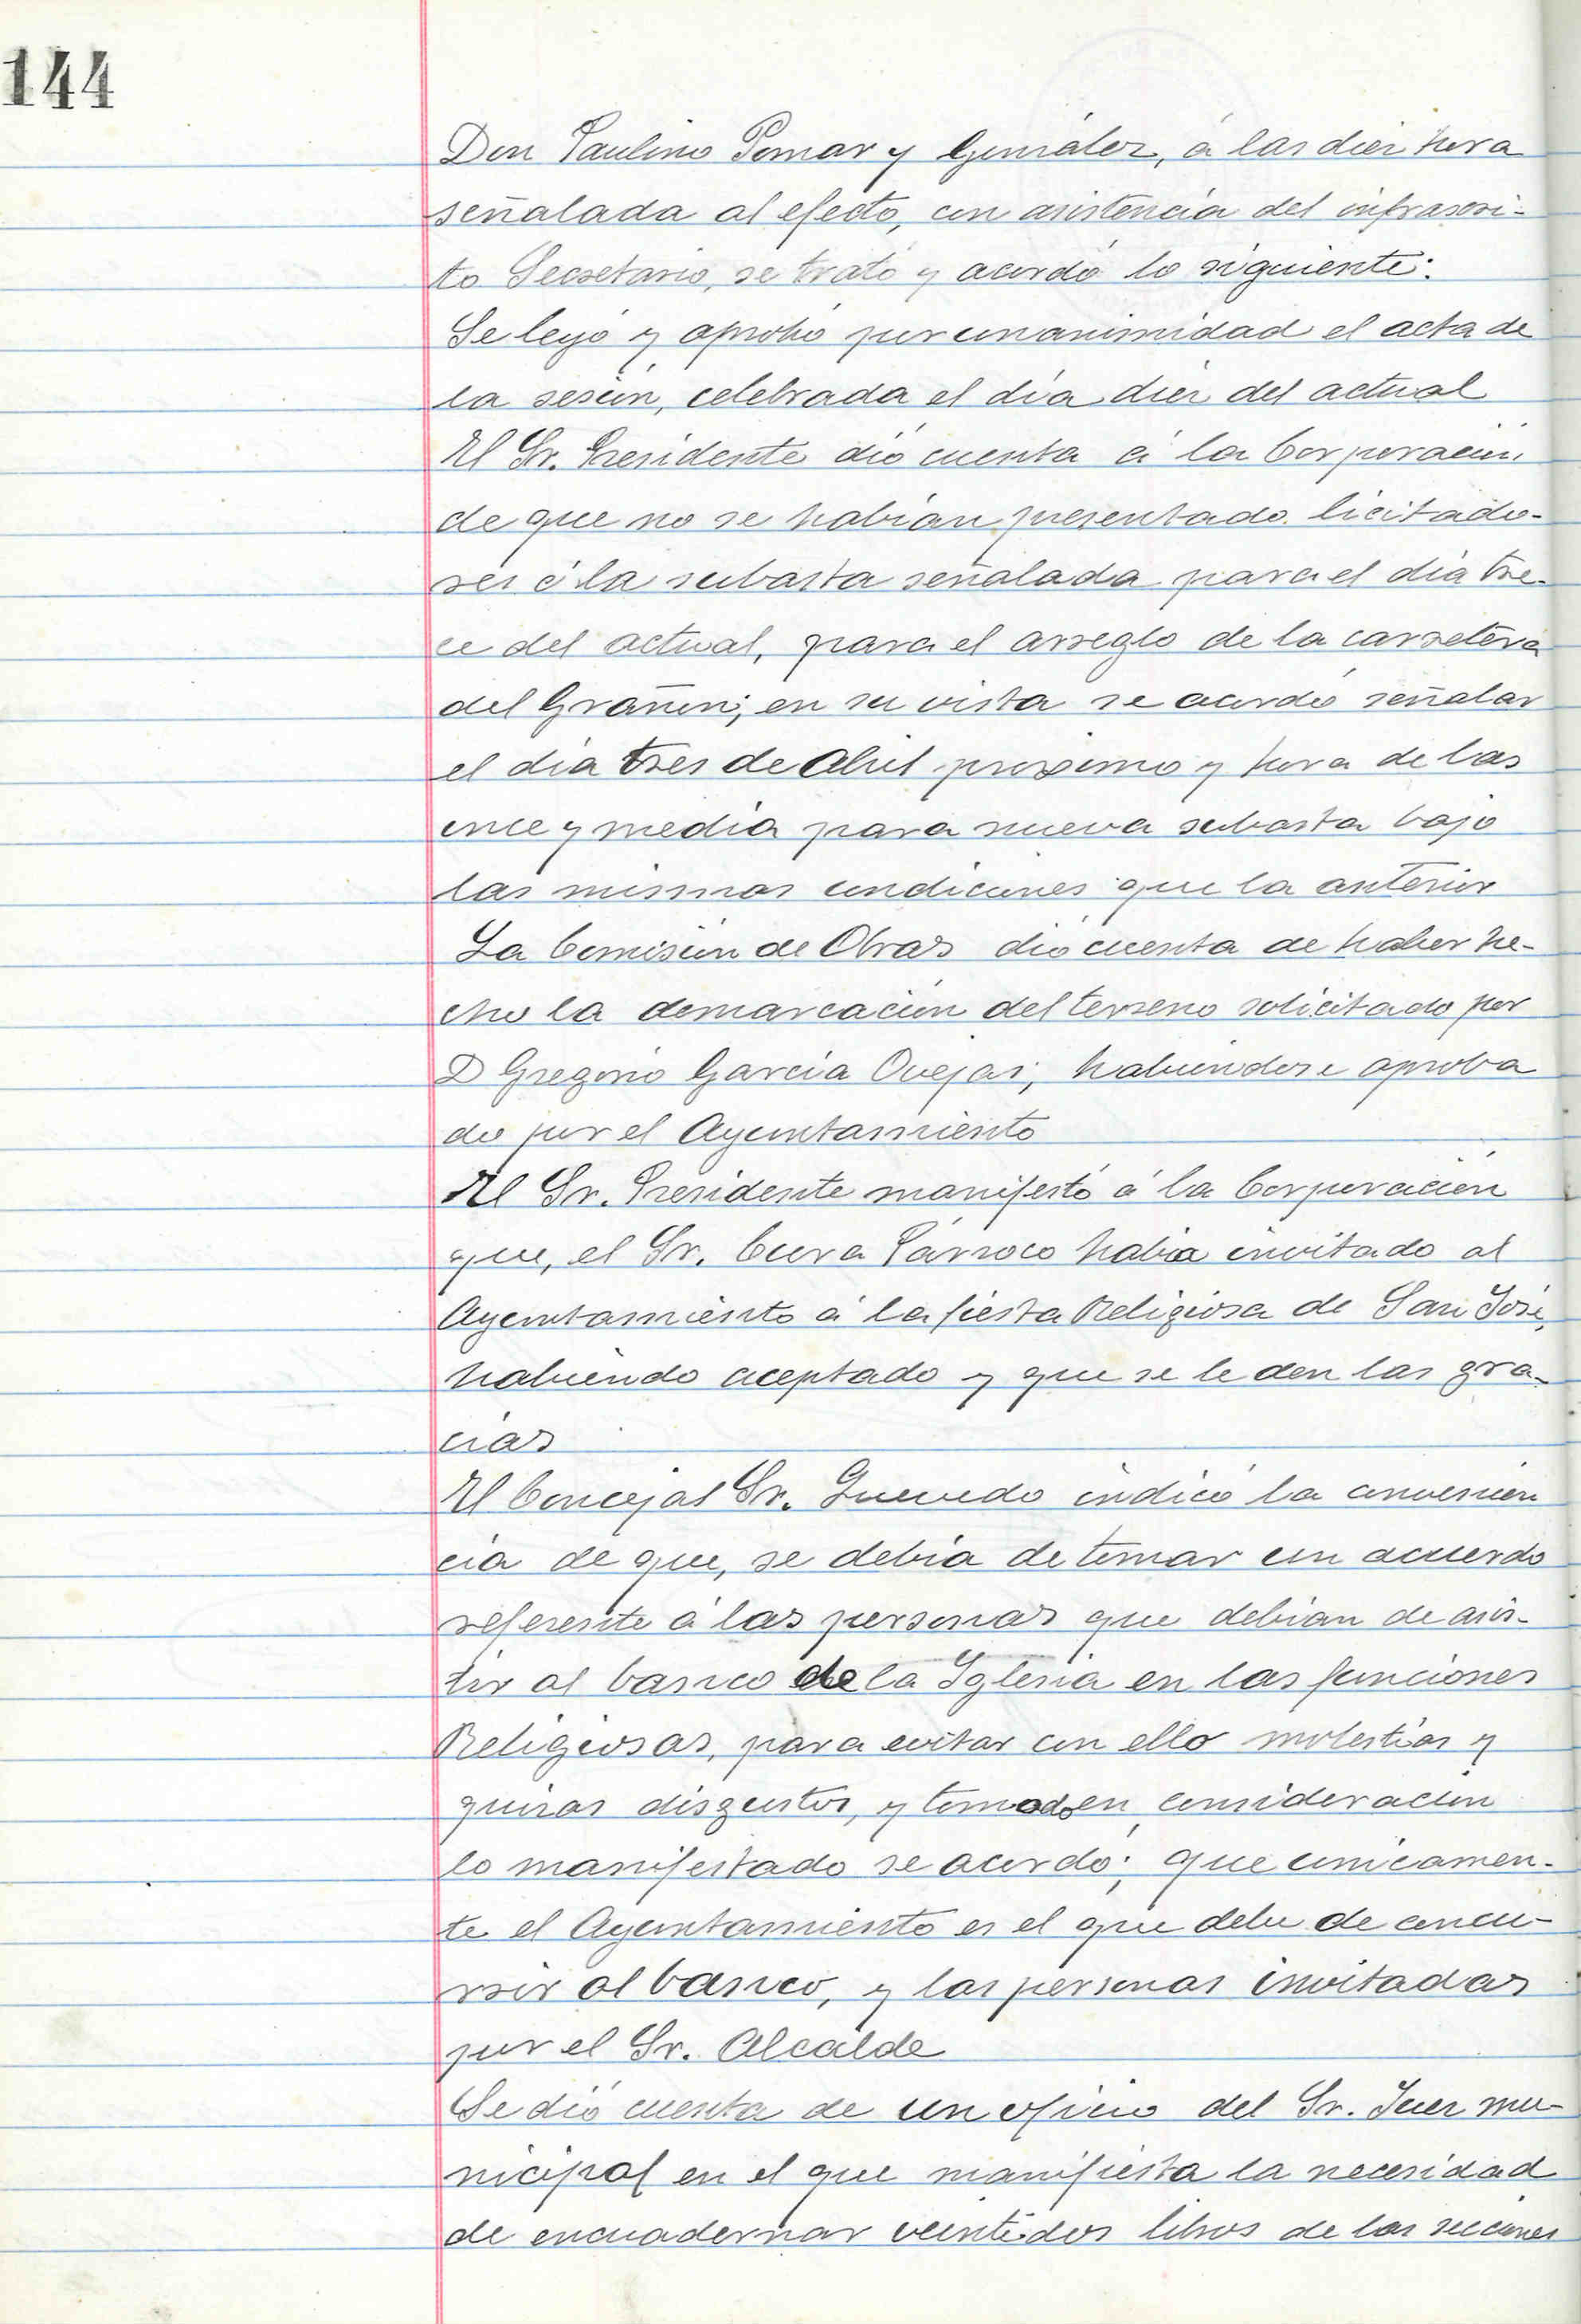 144
Don Paulino Pomar y González, á las diez hora
señalada al efecto, con asistencia del infrascri-
to Secretario, se trató y acordó lo siguiente:
Se leyó y aprobó por unanimidad el acta de
la sesión, celebrada el día diez del actual
El Sr. Presidente dió cuenta á la Corporación,
de que no se habían presentado licitado-
res á la subasta señalada para el día tre-
ce del actual, para el arreglo de la carretera
del Grañón; en su vista se acordó señalar
el día tres de Abril proximo y hora de las
once y media para nueva subasta bajo
las mismas condiciones que la anterior
La Comisión de Obras dió cuenta de haber he-
cho la demarcación del terreno solicitado por
D Gregorio García Ovejas; habiendose aproba
do por el Ayuntamiento
El Sr. Presidente manifestó á la Corporación
que, el Sr. Cura Párroco habia invitado al
Ayuntamiento á la fiesta Religiosa de San José,
habiendo aceptado y que se le den las gra-
cias
El Concejal Sr. Quevedo indicó la convenien
cia de que, se debia de tomar un acuerdo
referente á las personas que debian de asis-
tir al banco de la Iglesia en las funciones
Religiosas, para evitar con ello molestias y
quizas disgustos, y tomado en consideración
lo manifestado se acordó; que unicamen-
te el Ayuntamiento es el que debe de concu-
rrir al banco, y las personas invitadas
por el Sr. Alcalde
Se dió cuenta de un oficio del Sr. Juez mu-
nicipal en el que manifiesta la necesidad
de encuadernar veintidos libros de las secciones